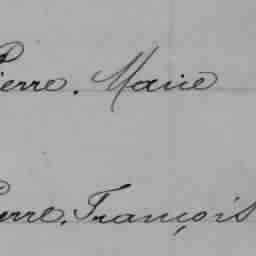 Pierre. Marie
Pierre. François